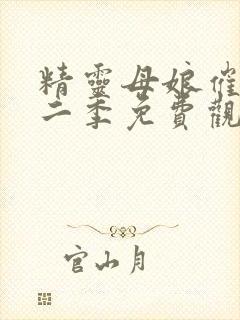 精靈母娘催
二季免費觀
官山月